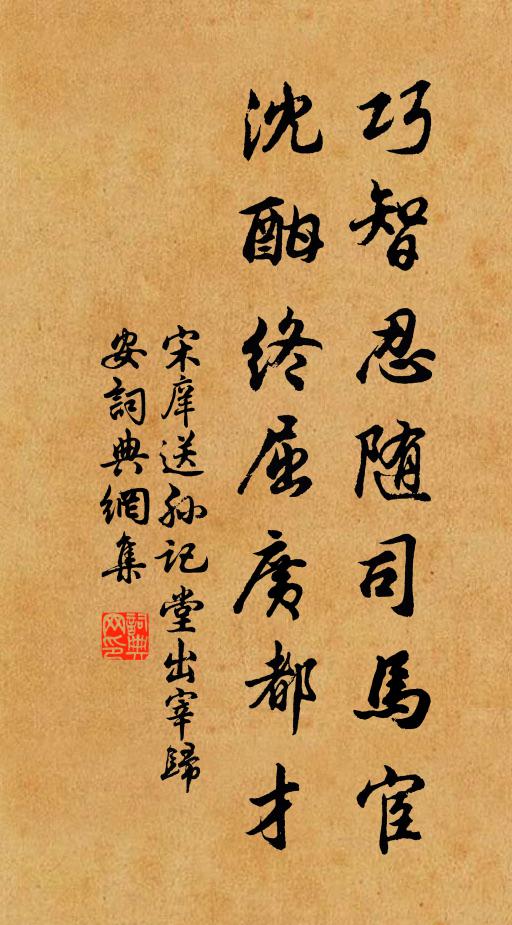 巧智忍随司馬宦
沈酣終屈廣都才
宋庠送孙記堂出宰歸
安詞典網集
詞典網印